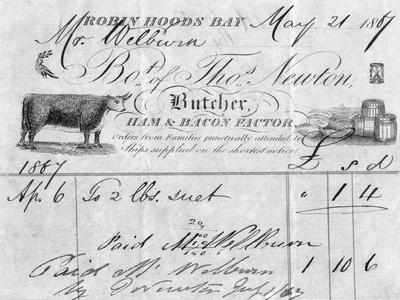 ROBIN HOODS BAY May 21 1867
Mr. Welburn
Bot. of Thos. Newton,
Butcher,
HAM & BACON FACTOR
Orders from Families punctually attended to
Ships supplied on the shortest notice
£ s d
1867
Ap 6 To 2 lbs. suet " 1 4
Paid Mr Welburn
Paid Mr Welburn 1 10 6
by